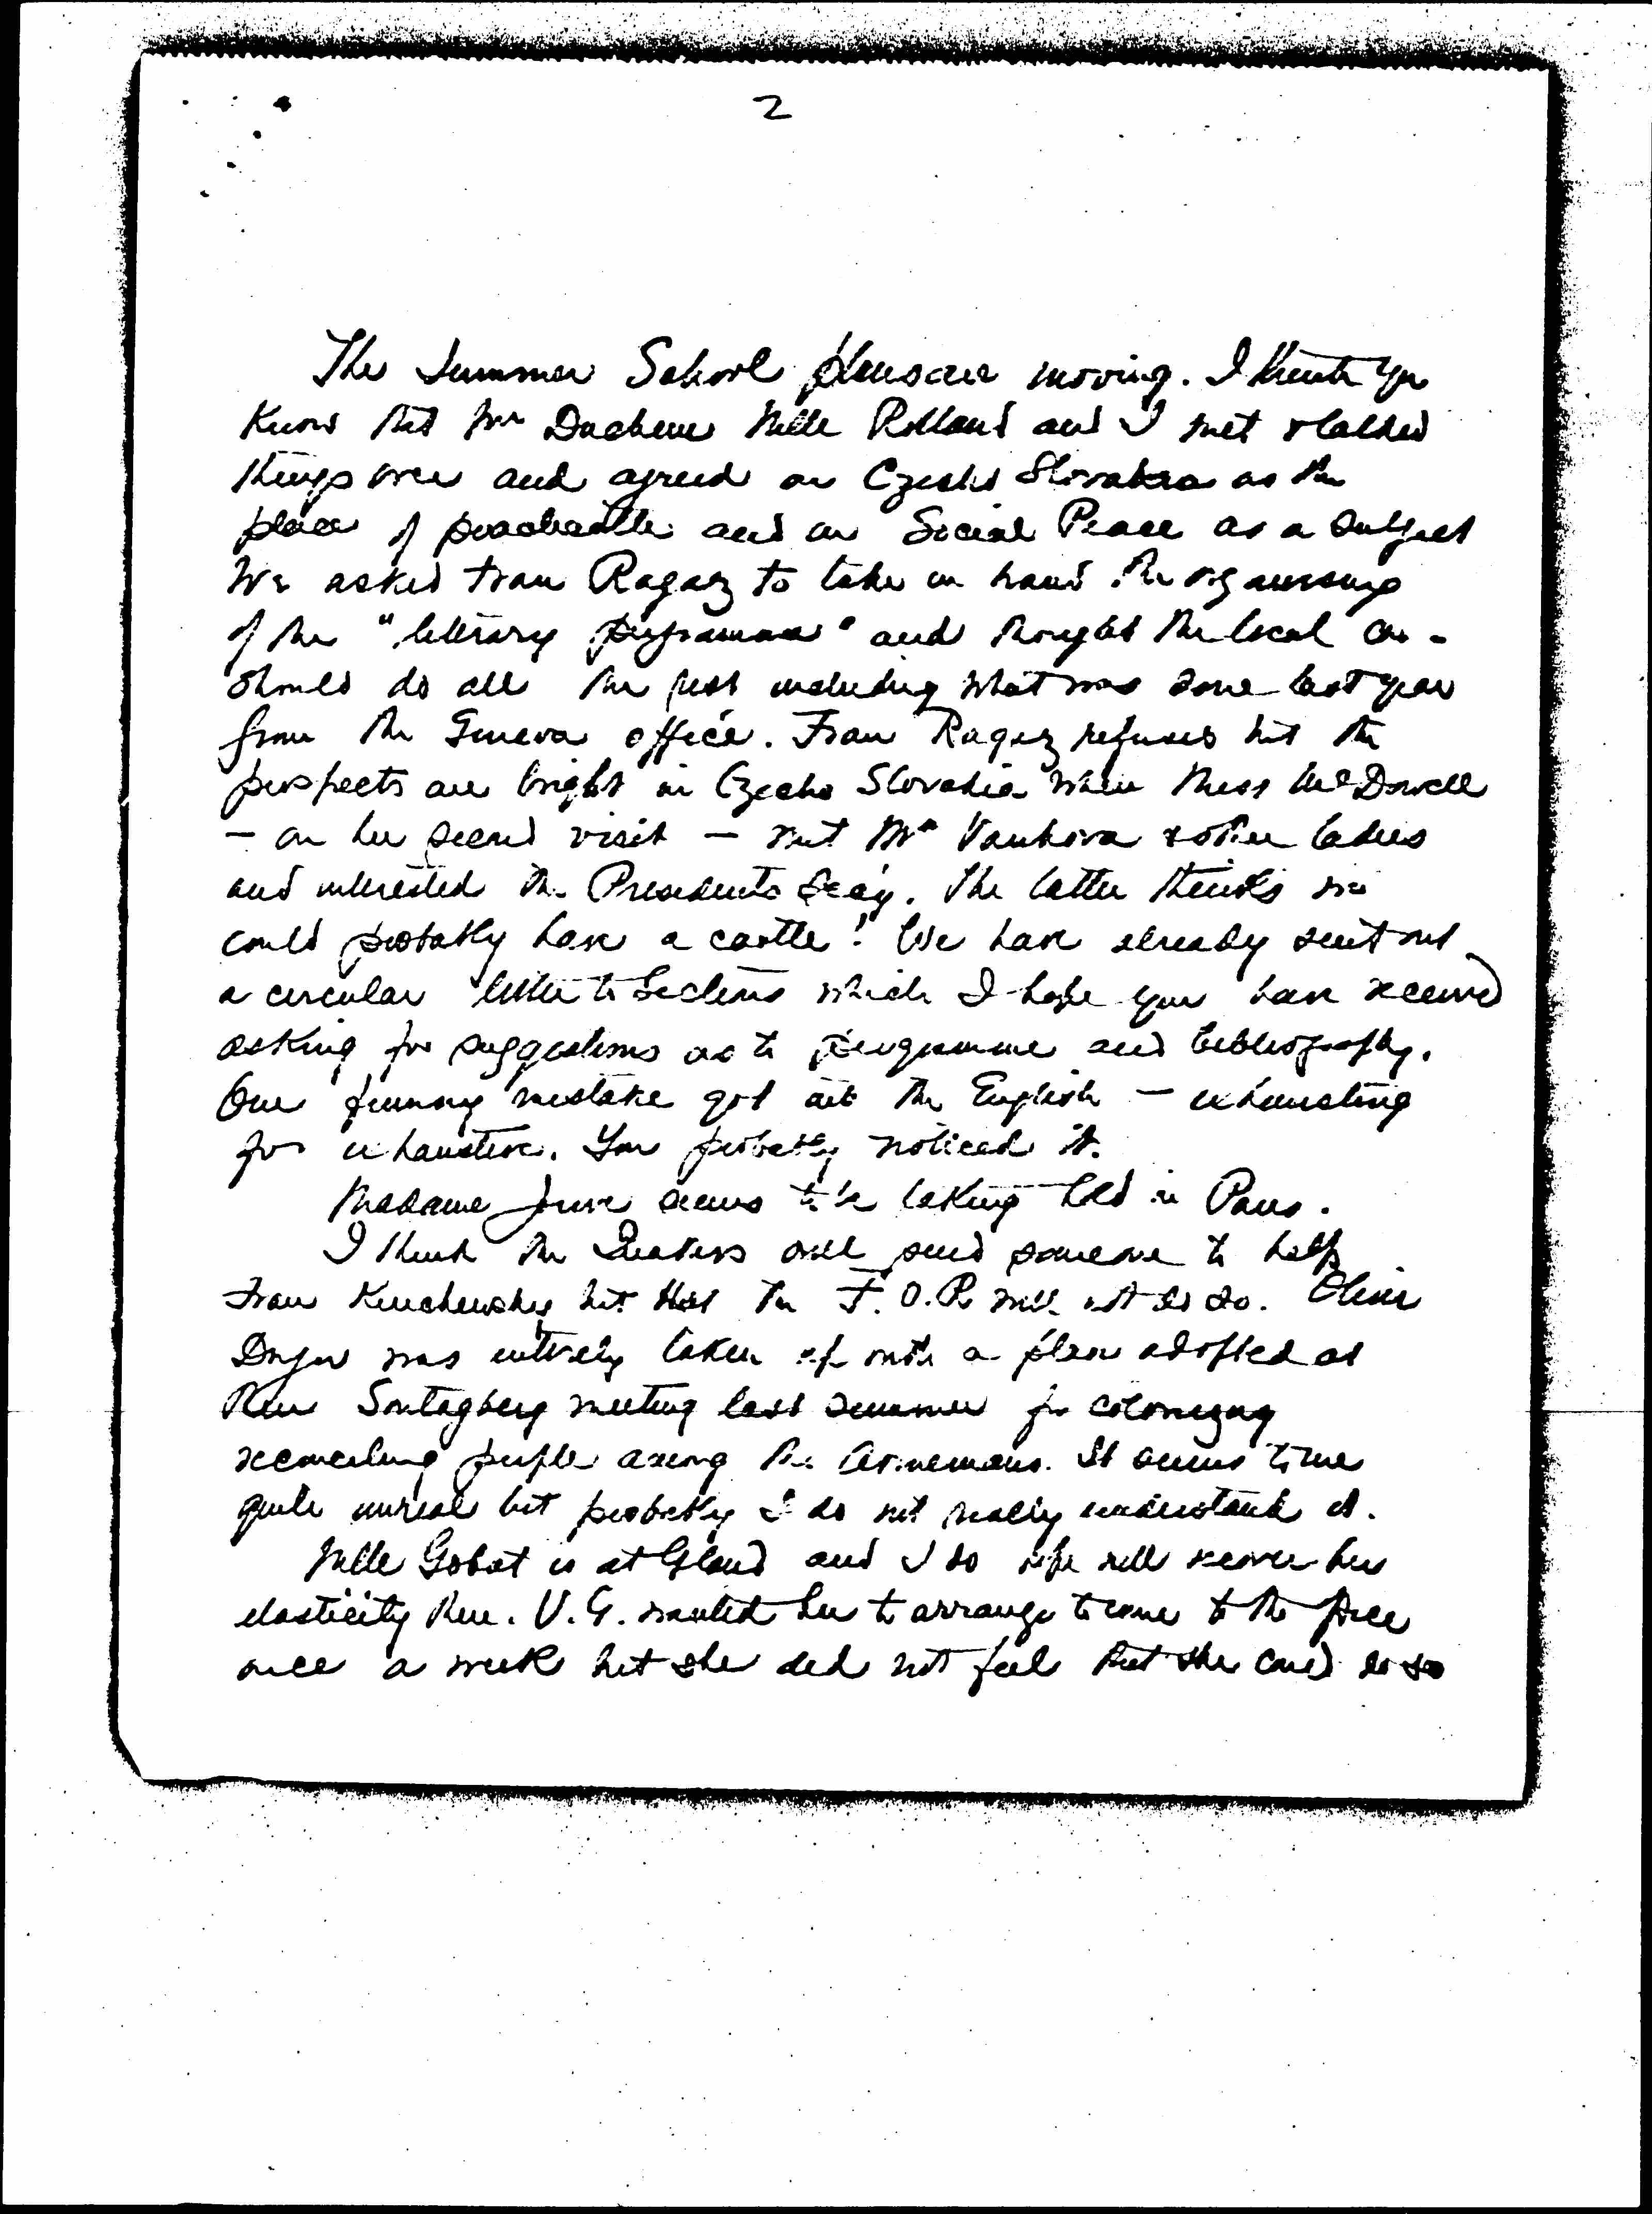 2
The Summer School plans are moving. I think you
know that Me Duchene Mlle Rolland and I met & talked
things over and agreed on Czecho Slovakia as the
place if practicable and on Social Peace as a subject
We asked Frau Ragaz to take in hand the organising
of the "literary programme" and thought the local
should do all the rest including what was done last year
from the Geneva office. Frau Ragaz refuses but the
prospects are bright in Czecho Slovakia where Miss McDowell
— on her second visit — met Me Vankova & other ladies
and interested the President's
The latter thinks we
could probably have a castle! We have already sent out
a circular letter to Sections which I hope you have received
asking for suggestions as to programme and bibliography.
One funny mistake got into the English — exhausting
for exhaustive. You probably noticed it.
Madame Jouve seems to be taking hold in Paris.
I think the Quakers will send someone to help
Frau but that the F.O.R. will not do so. Oliver
Dryer was entirely taken up with a plan adopted at
their Sontagberg meeting last summer for colonizing
reconciling people among the Armenians. It seems to me
quite unreal but probably I do not really understand it.
Mlle Gobat is at Gland and I do hope will recover her
elasticity there. V.G. wanted her to arrange to come to the office
once a week but she did not feel that she could do so